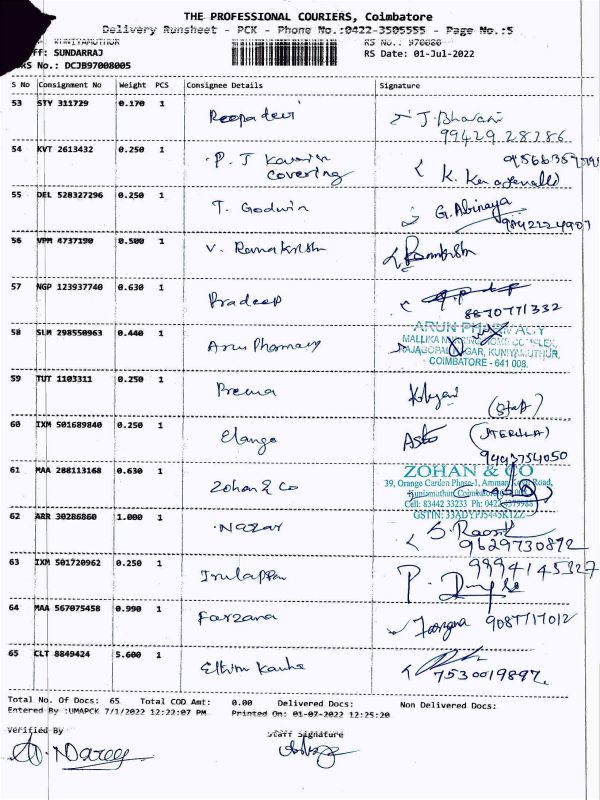 THE PROFESSIONAL COURIERS, Coimbatore
Delivery Runsheet - PCK - Phone No.:0422-3505555 - Page No.:5
KUNIYAMUTHUR
RS No.: 970080
ff: SUNDARRAJ
RS Date: 01-Jul-2022
RS No.: DCJB97008005
S No Consignment No Weight PCS Consignee Details Signature
53 STY 311729 0.170 1 Deepa devi J. Bharani
99429 28286
54 KVT 2613432 0.250 1 P. J
covering K.
55 DEL 528327296 0.250 1 T. Godwin G. Abinaya
9842224907
56 VPM 4737190 0.500 1 V. Ramakrish
57 NGP 123937740 0.630 1 Pradeep
8870771332
58 SLM 298550963 0.440 1 Arun Pharmacy ARUN PHARMACY
MALLIKA NURSING HOME COMPLEX,
RAJAGOPAL NAGAR, KUNIYAMUTHUR,
COIMBATORE - 641 008.
59 TUT 1103311 0.250 1 Prema
60 IXM 501689840 0.250 1 Elango
9443754050
61 MAA 288113168 0.630 1 Zohan & Co ZOHAN & CO
39, Orange Garden Phase-1, Amman Road,
Kuniamuthur, Coimbatore
Cell: 83442 33233 Ph: 0422
GSTIN:
62 ARR 30286860 1.000 1 Nazar S.
9629730892
63 IXM 501720962 0.250 1 Irulappan 9994145327
P.
64 MAA 567075458 0.990 1 Farzana Farzana 9087717012
65 CLT 8849424 5.600 1
7530019897
Total No. Of Docs: 65 Total COD Amt: 0.00 Delivered Docs: Non Delivered Docs:
Entered By :UMAPCK 7/1/2022 12:22:07 PM Printed On: 01-07-2022 12:25:20
Verified By Staff Signature